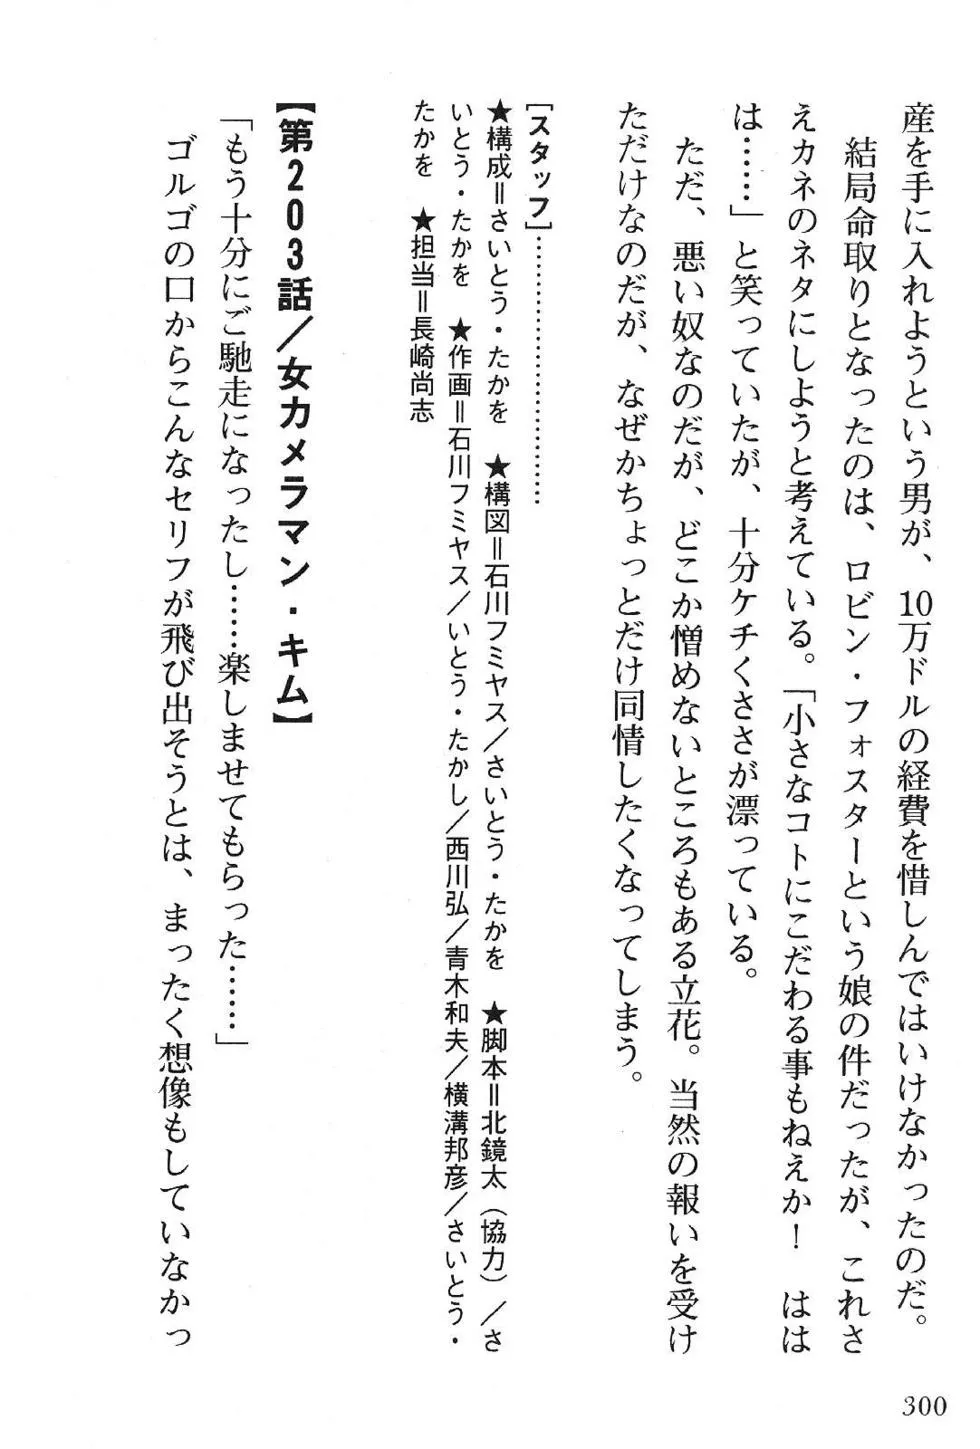 産を手に入れようという男が、10万ドルの経費を惜しんではいけなかったのだ。
結局命取りとなったのは、ロビン・フォスターという娘の件だったが、これさ
えカネのネタにしようと考えている。「小さなコトにこだわる事もねえか！　はは
は……」と笑っていたが、十分ケチくささが漂っている。
ただ、悪い奴なのだが、どこか憎めないところもある立花。当然の報いを受け
ただけなのだが、なぜかちょっとだけ同情したくなってしまう。
［スタッフ］………………………
★構成＝さいとう・たかを　★構図＝石川フミヤス／さいとう・たかを　★脚本＝北鏡太（協力）／さ
いとう・たかを　★作画＝石川フミヤス／いとう・たかし／西川弘／青木和夫／横溝邦彦／さいとう・
たかを　★担当＝長崎尚志
【第203話／女カメラマン・キム】
「もう十分にご馳走になったし……楽しませてもらった……」
ゴルゴの口からこんなセリフが飛び出そうとは、まったく想像もしていなかっ
300